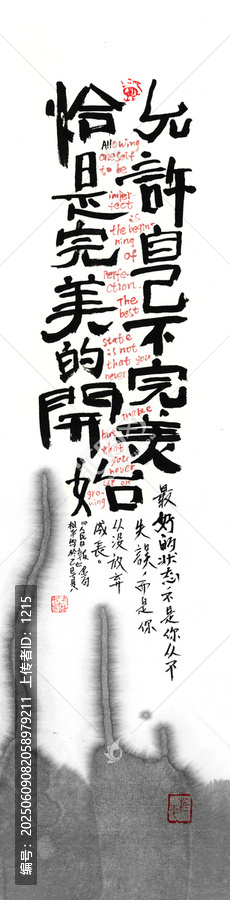 允許自己不完美
恰是完美的開始
Allowing
oneself
to be
imper
fect
is
the begin
ning
of
Perfe
ction.
The
best
state
is not
that you
never
make
but
that
you
never
give up
gro
wing
最好的狀态,不是你从不
失誤,而是你
从没放弃
成長。
编号:20250609082058979211 上传者ID:1215